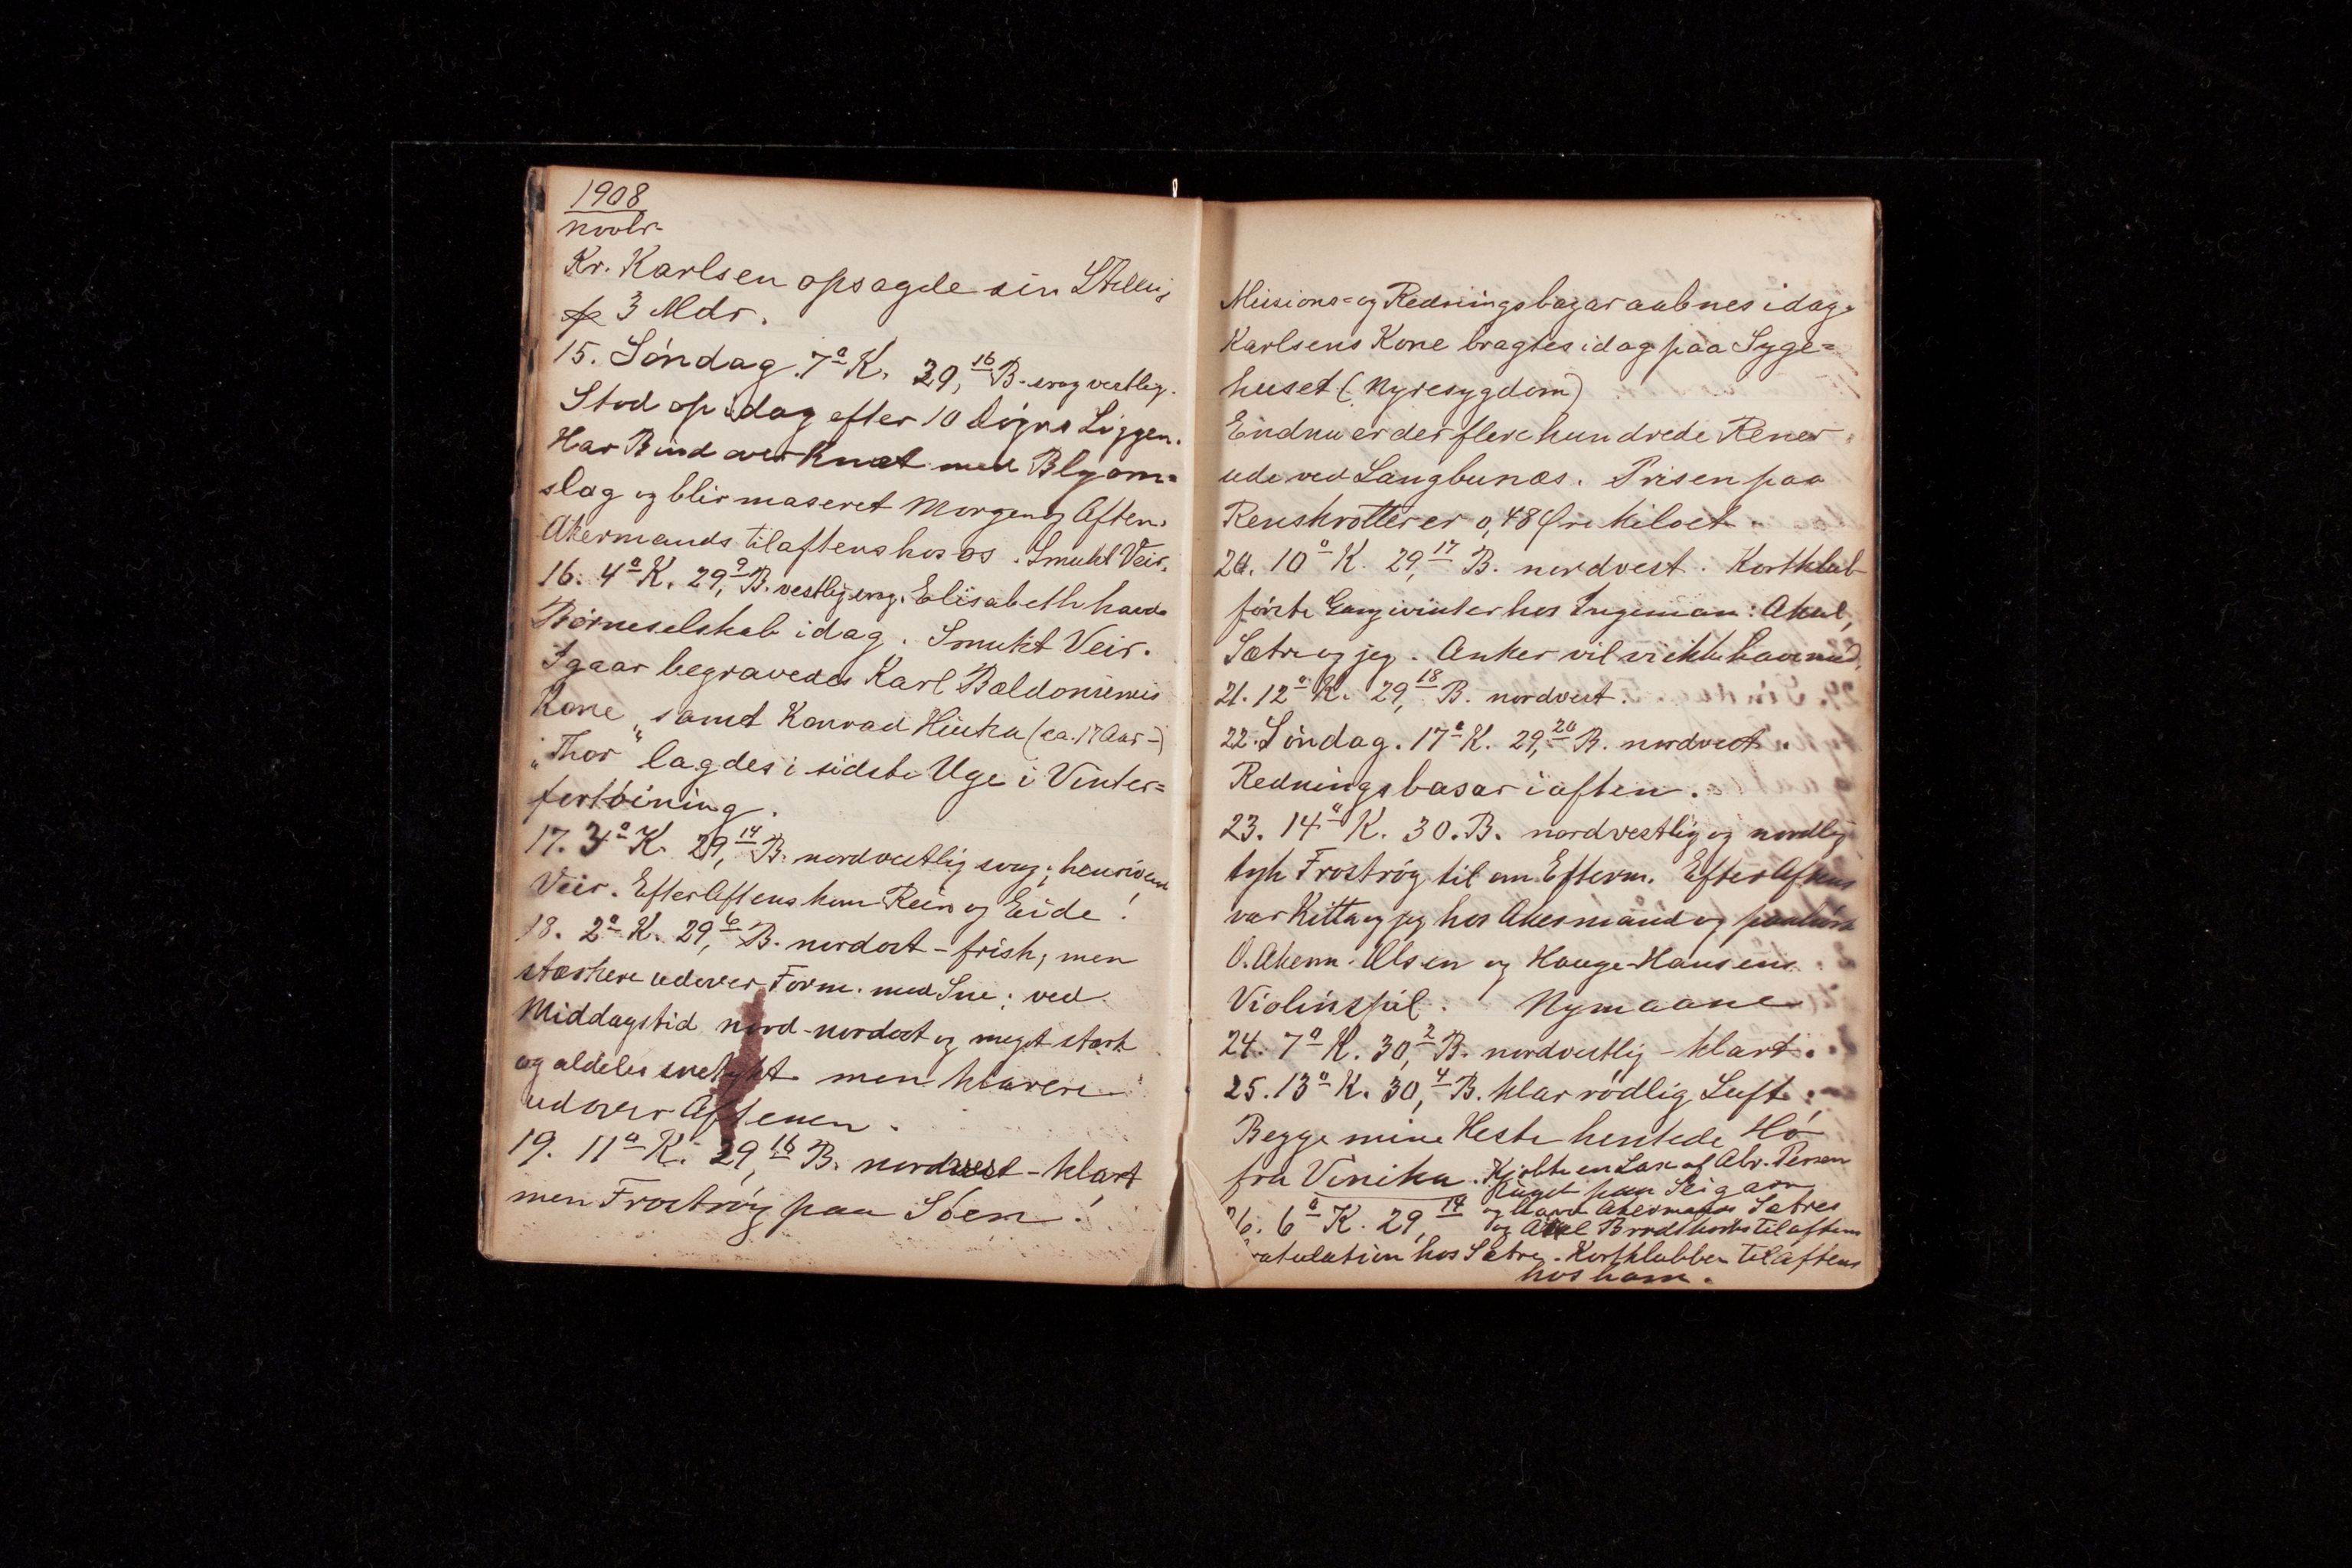 1908
novbr.
Kr. Karlsen opsagde sin Stilling
p 3 Mdr.
15. Söndag. 7° K. 29,16 B. svag vestlig.
Stod op idag efter 10 Dögns Liggen.
Har Bind over Knæt med Blyom=
slag og blir maseret Morgen og Aften.
Akermands tilaftens hos os. Smukt Veir.
16. 4° K. 29,9 B. vestlig svag. Elisabeth havde
Börneselskab idag. Smukt Veir.
Igaar begravedes Karl Bældoniemis
Kone, samt Konrad Hiuka (ca. 17 Aar-)
"Thor" lagdes i sidste Uge i Vinter=
fortöining.
17. 3° K. 29,14 B. nordvestlig svag; henrivende
Veir. Efter Aftens kom Rein og Eide!
18. 2° K. 29,6 B. nordost - frisk, men
stærkere udover Form. med Sne; ved
Middagstid nord-nordost og meget stærk
og aldeles snetykt men klarere
udover Aftenen.
19. 11° K. 29,16 B. nordvest - klart
men Froströg paa Söen!
Missions= og Redningsbazar aabnes idag.
Karlsens Kone bragtes idag paa Syge=
huset (Nyresygdom)
Endnu er der flere hundrede Rener
ude ved Langbunæs. Prisen paa
Renskrotter er 0,48 Øre kiloet
20. 10° K. 29,17 B. nordvest. Kortklub
förste Gang ivinter hos Ingeman: Akul,
Sætre og jeg. Anker vil vi ikke have med.
21. 12° K. 29,18 B. nordvest.
22. Söndag. 17° K. 29,20 B. nordvest.
Redningsbasar iaften.
23. 14° K. 30. B. nordvestlig og nordlig
tyk Froströg til om Efterm. Efter Aftens
var Kitta og jeg hos Akermand og paahörte
O. Akerm. Olsen og Hauge-Hansens
Violinspil. Nymaane
24. 7° K. 30,2 B. nordvestlig - klart.
25. 13° K. 30,4 B. klar rödlig Luft.
Begge mine Heste hentede Hö
fra Vinika. Kjøbte en Lax af Abr. Persen
fanget paa Steigarn
og havde Akermands Sætres
26. 6° K. 29,14 og Aksel Brodtkorbs tilaftens
ratulation hos Sætre. Kortklubben tilaftens
hos ham.